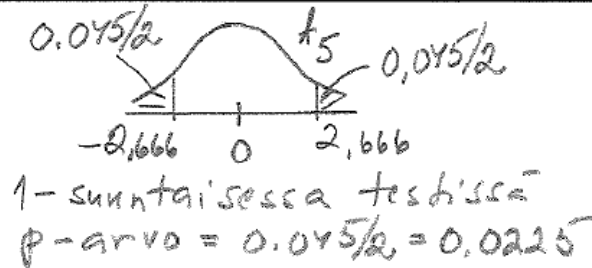 0.045/2 t5 0,045/2
-2,666 0 2,666
1-suuntaisessa testissä
p-arvo = 0.045/2 = 0.0225